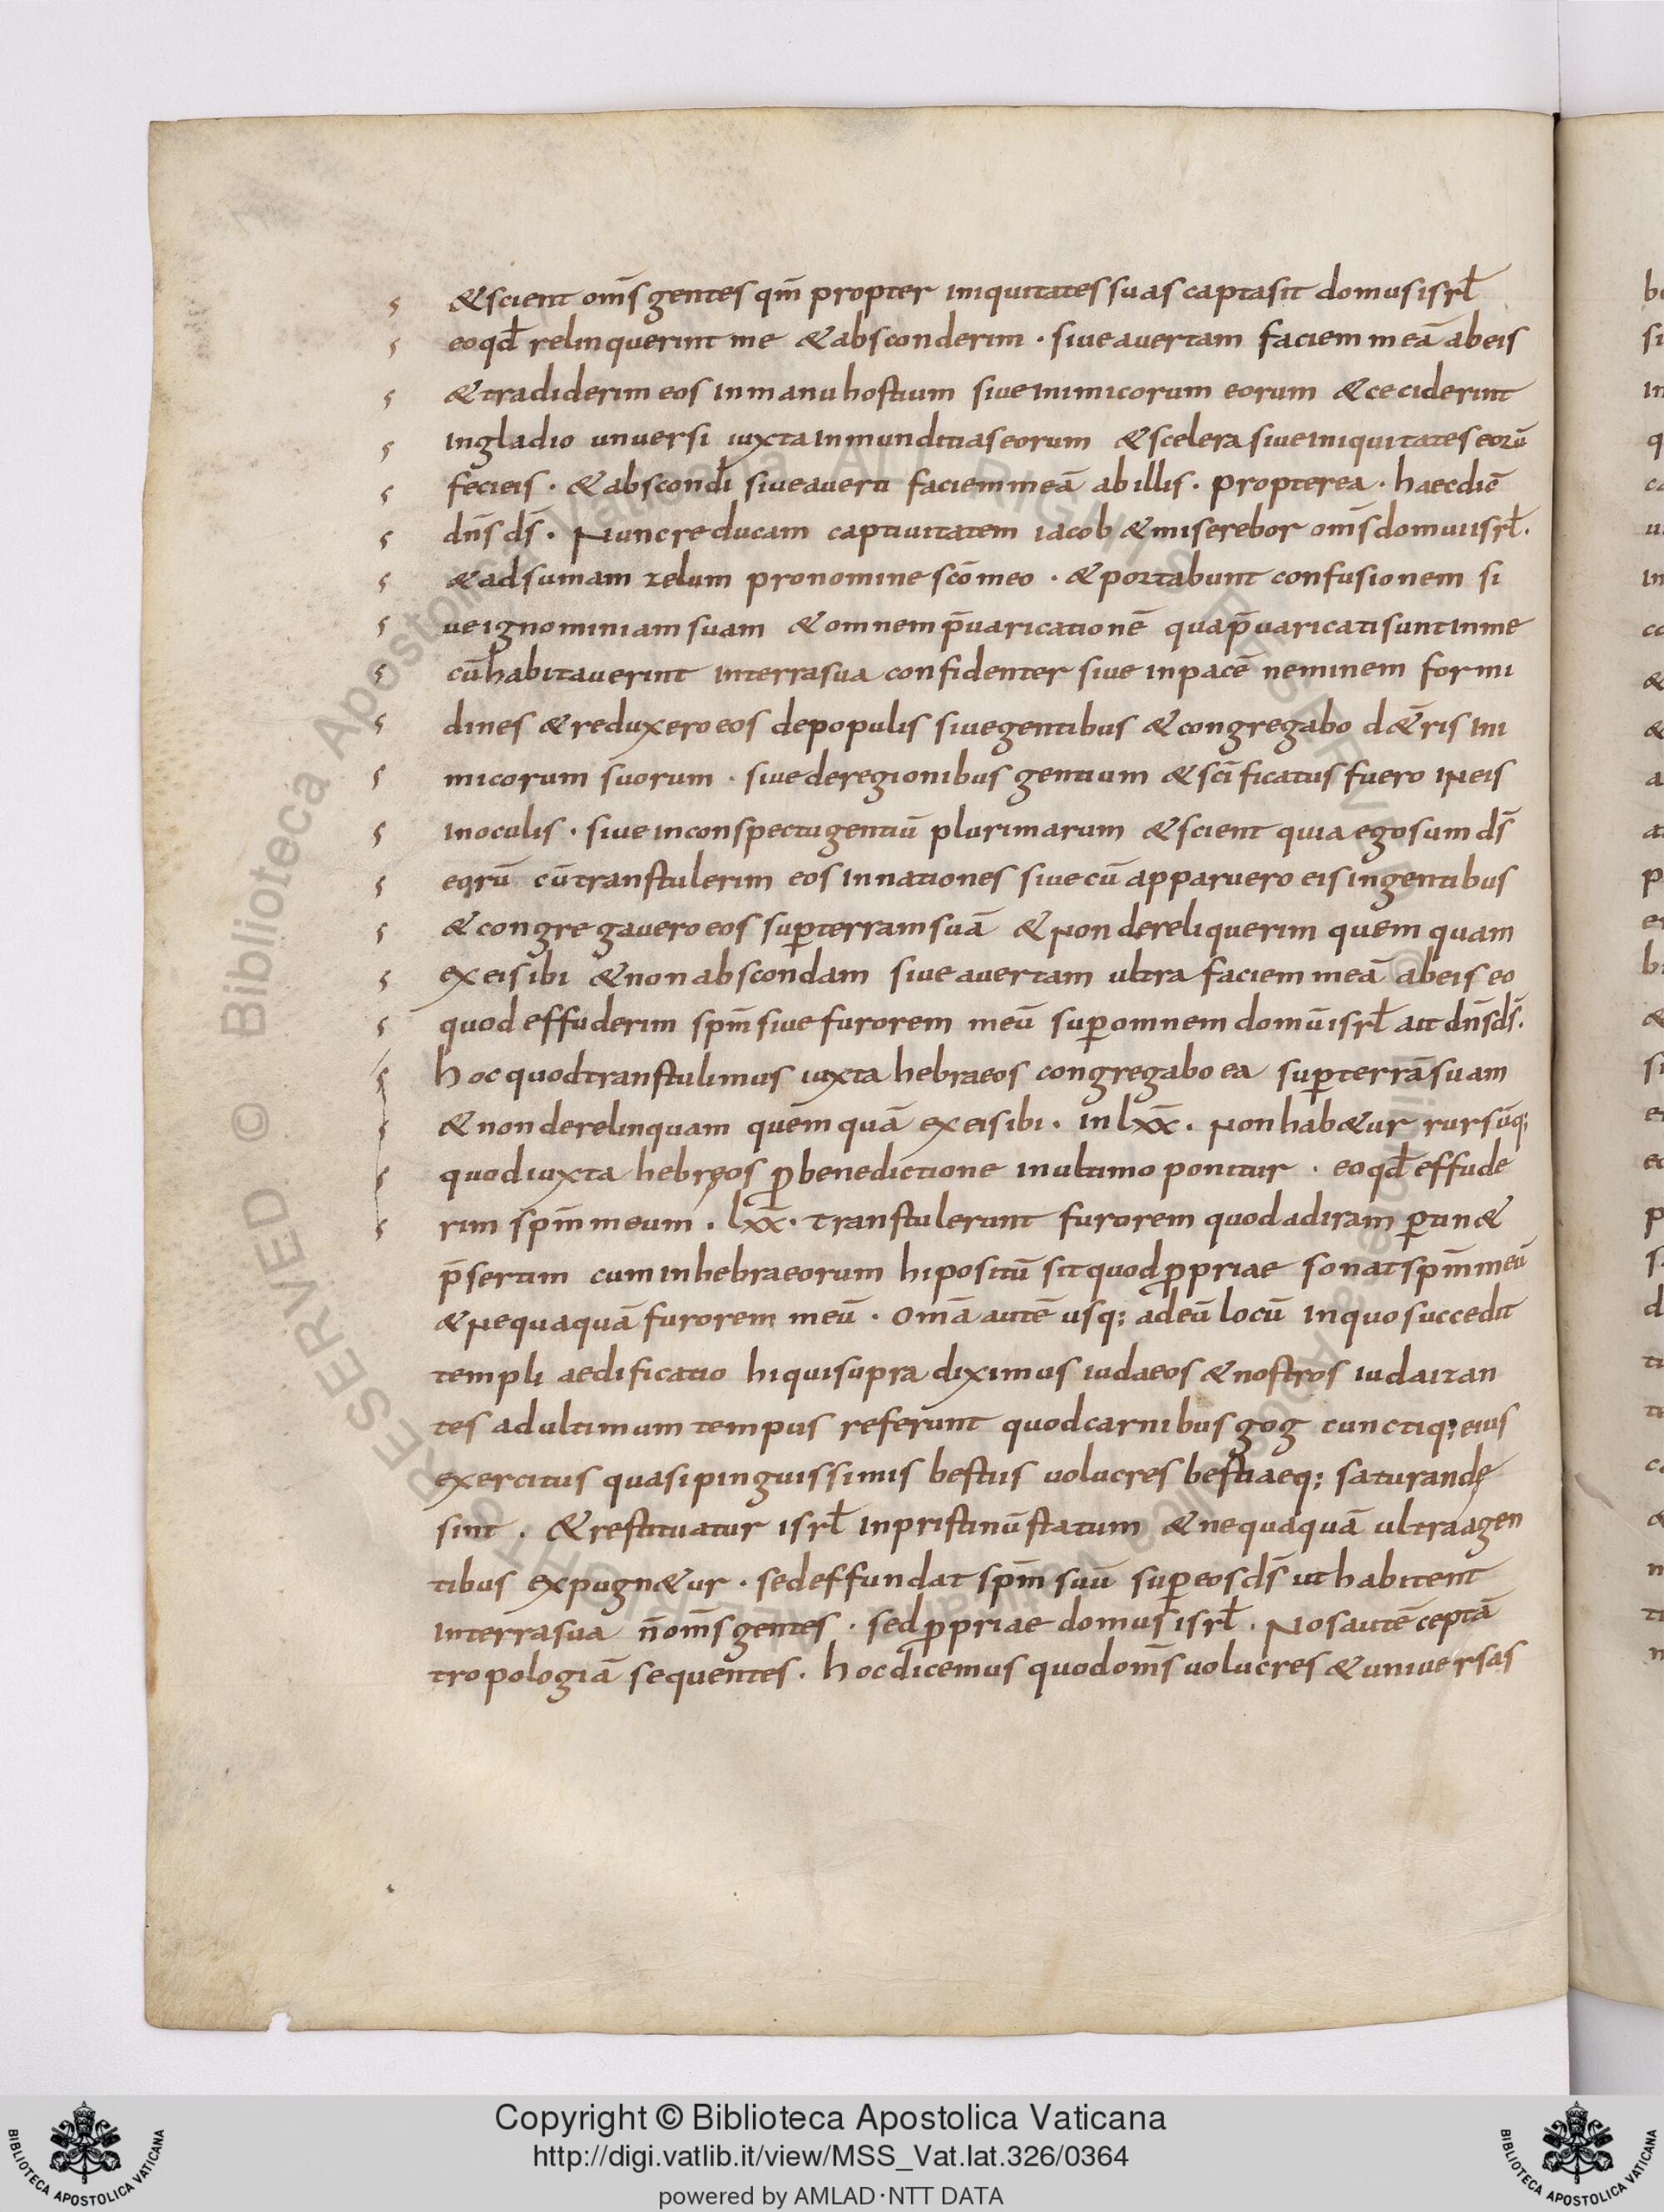 &scient om̄s gentes qm̄ propter iniquitates suas captasit domus isrł
eoqđ relinquerint me &absconderim · siue auertam faciem meā abeis
&tradiderim eos inmanu hostium siue inimicorum eorum &ceciderint
ingladio unuersi iuxta inmunditias eorum &scelera siue iniquitates eorū
feci eis · &abscondi siue auerti faciem meā abillis · propterea · haec dic̄
dn̄s ds̄ · Nunc reducam captiuitatem iacob &miserebor om̄s domui isrł ·
&adsumam zelum pro nomine sc̄o meo · &portabunt confusionem si
ue ignominiam suam &omnem p̄uaricationē qua p̄uaricati sunt inme
cū habitauerint interra sua confidenter siue inpace neminem formi
dines &reduxero eos depopulis siue gentibus &congregabo d&̄ris ini
micorum suorum · siue deregionibus gentium &sc̄ificatus fuero iNeis
inoculis · siue inconspectu gentiū plurimarum &scient quia ego sum ds̄
eorū cū transtulerim eos innationes siue cū apparuero eis ingentibus
&congregauero eos sup̱ terram suā &Non dereliquerim quem quam
exeis ibi &non abscondam siue auertam ultra faciem meā abeis eo
quod effuderim sp̄m siue furorem meū sup̱ omnem domū isrł ait dn̄s ds̄.
hoc quod transtulimus iuxta hebraeos congregabo ea sup̱ terrā suam
&non derelinquam quem quā exeis ibi · in lx̄x̄ · Non hab&ur rursūq;
quod iuxta hebręos ꝓ benedictione inultimo ponitur · eoqđ effude
rim sp̄m meum · lx̄x̄ · transtulerunt furorem quod ad iram p̱tin&
p̄sertim cum inhebraeorum hi positū sit quod ꝓpriae sonat sp̄m meū
&Nequaquā furorem meū · Om̄a autē usq; ad eū locū inquo succedit
templi aedificatio hi qui supra diximus iudaeos &nostros iudaizan
tes ad ultimum tempus referunt quod carnibus gog cunctiq; eius
exercitus quasi pinguissimis bestiis uolucres bestiaeq; saturandę
sint · &restituatur isrł inpristinū statum &nequaquā ultra agen
tibus expugn&ur · sed effundat sp̄m suū sup̱ eos ds̄ ut habitent
interra sua n̄ om̄s gentes · sed ꝓpriae domus isrł · Nos autē ceptā
tropologiā sequentes · hoc dicemus quod om̄s uolucres &uniuersas
Copyright © Biblioteca Apostolica Vaticana
http://digi.vatlib.it/view/MSS_Vat.lat.326/0364
powered by AMLAD·NTT DATA
BIBLIOTECA APOSTOLICA VATICANA
BIBLIOTECA APOSTOLICA VATICANA